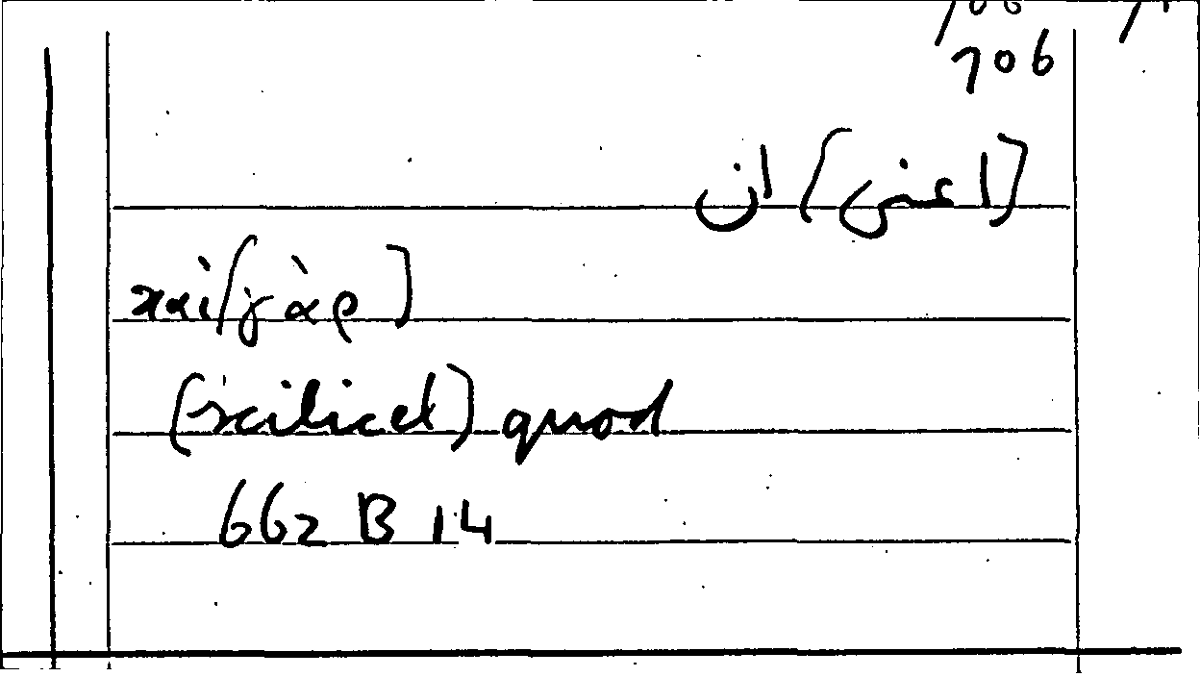 706
[اعنى] ان
καὶ [γὰρ]
[scilicet] quod
662 B 14